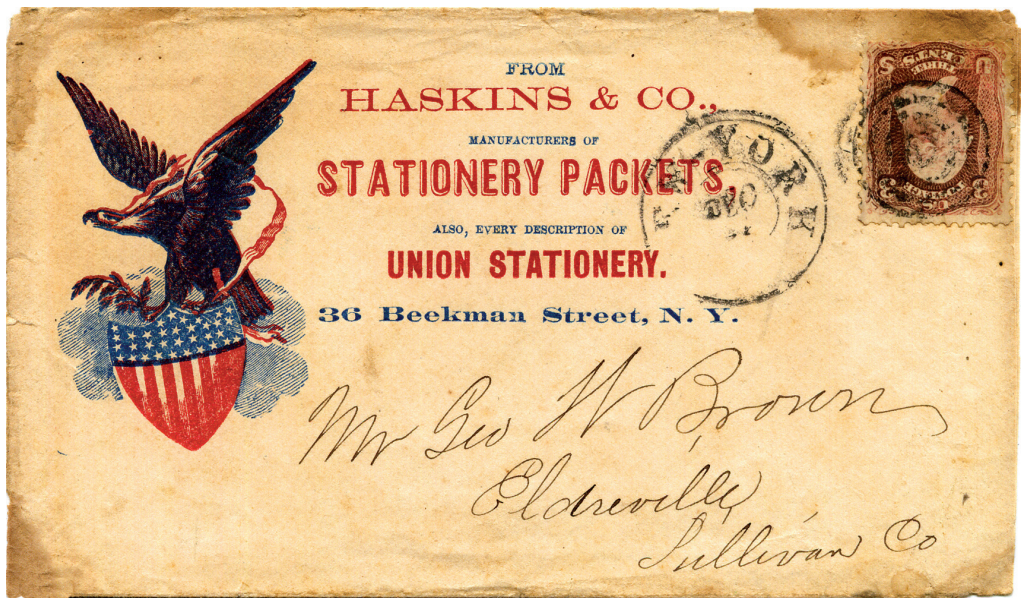 FROM
HASKINS & CO.,
MANUFACTURERS OF
STATIONERY PACKETS,
ALSO, EVERY DESCRIPTION OF
UNION STATIONERY.
36 Beekman Street, N. Y.
YORK
DEC
Mr Geo W Brown
Eldreville,
Sullivan Co